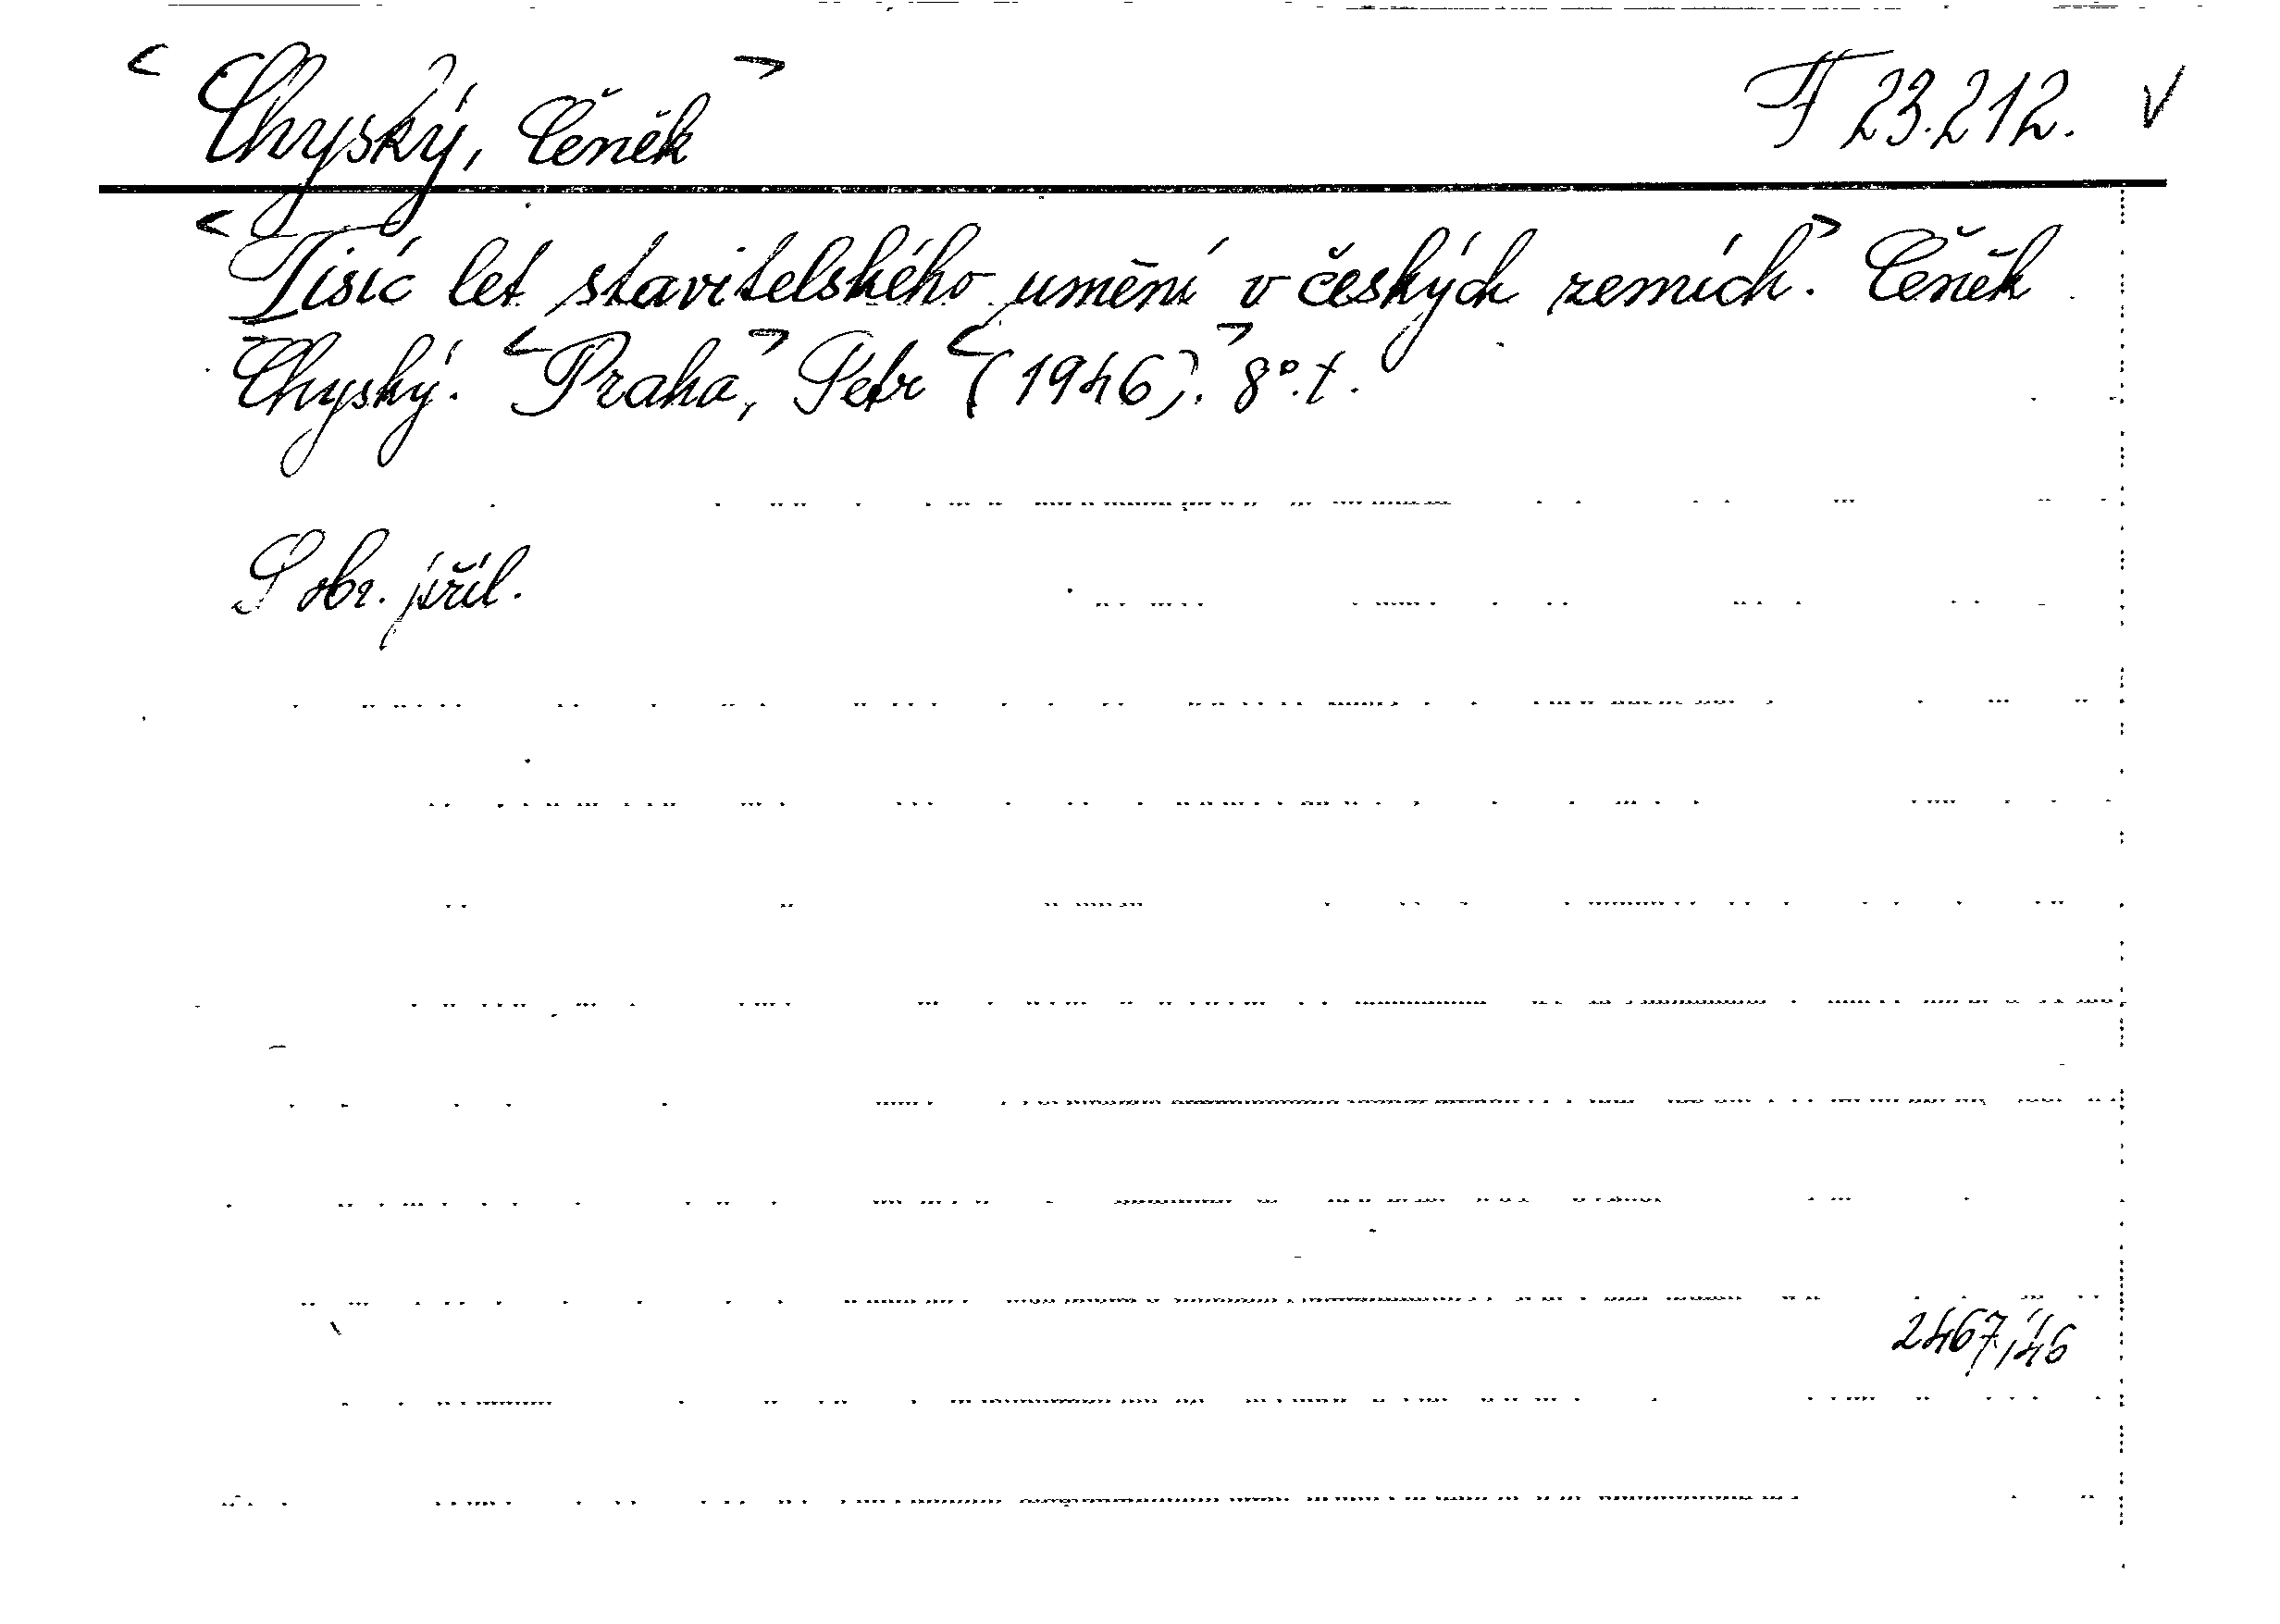 < Chyský, Čeněk > F 23.212. v
< Tisíc let stavitelského umění v českých zemích. > Čeněk
Chyský. < Praha, > Petr < (1946). > 8°. t.
S obr. příl.
2467/46